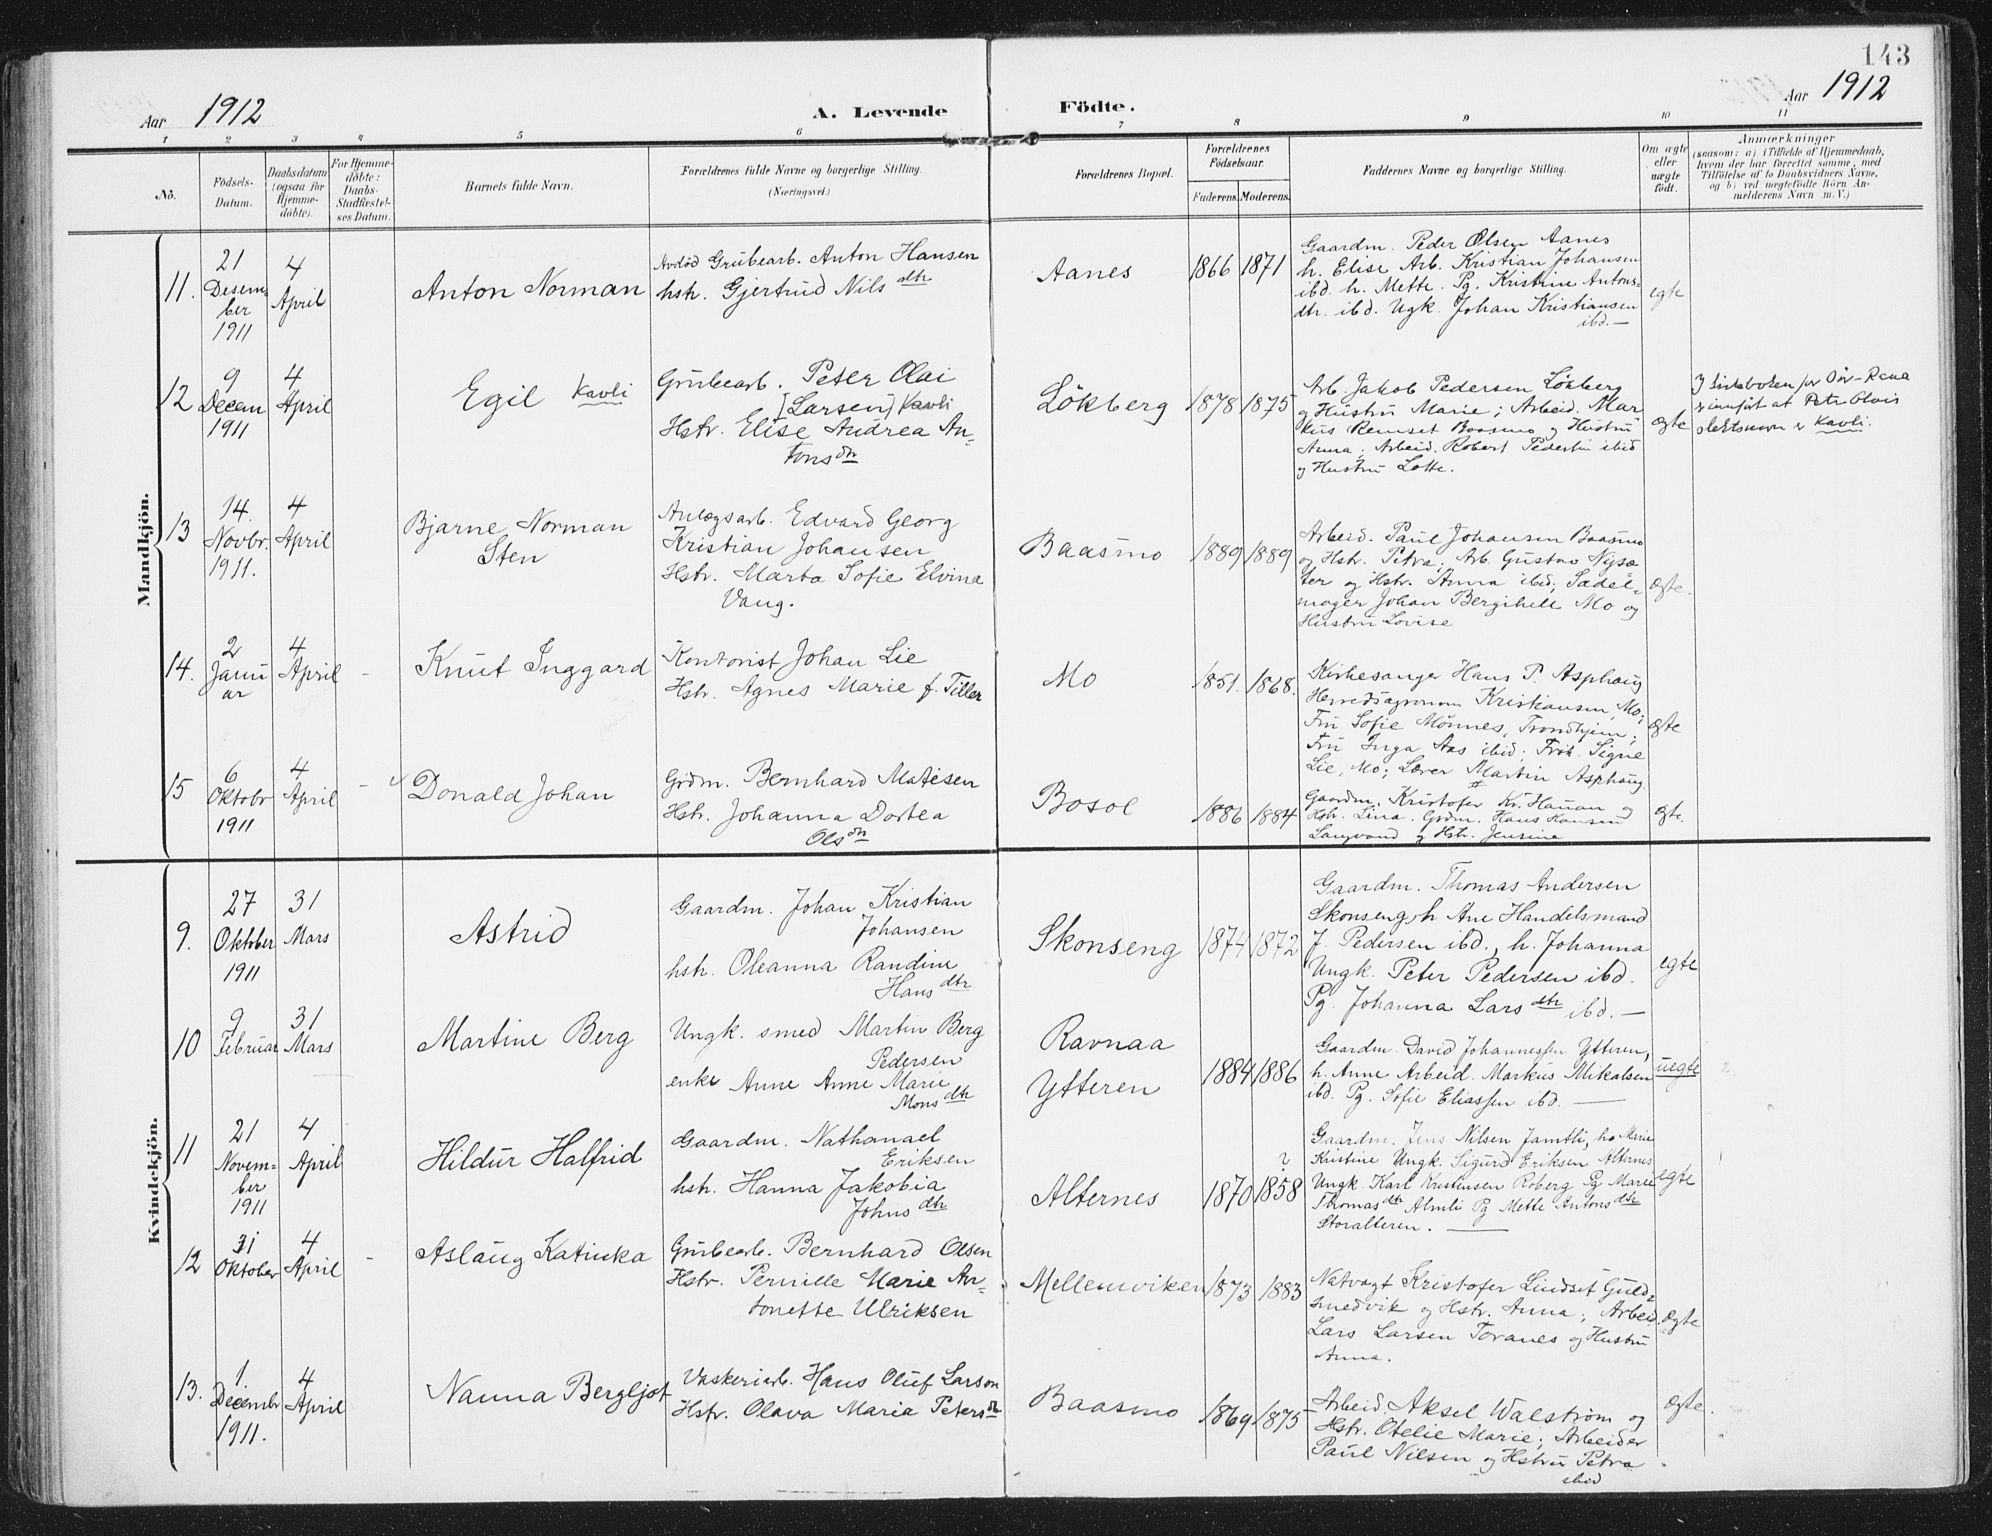 143
Aar 1912
A. Levende Födte.
Aar 1912
1 2 3 4 5 6 7 8 9 10 11
No.
Födsels-Datum.
Daabsdatum (ogsaa for Hjemme-döbte).
For Hjemme-döbte: Daabs-Stadfæstel-ses Datum.
Barnets fulde Navn.
Forældrenes fulde Navne og borgerlige Stilling.
(Næringsvei.)
Forældrenes Bopæl.
Forældrenes Födselsaar.
Faderens. Moderens.
Faddernes Navne og borgerlige Stilling.
Om ægte eller uægte födt.
Anmærkninger
(saasom: a) i Tilfælde af Hjemmedaab,
hvem der har forrettet samme, med
Tilföielse af to Daabsvidners Navne,
og b) ved uægtefödte Börn An-
melderens Navn m. V.)
Mandkjön.
11.
21 Desember 1911
4 April
Anton Norman
Avdød Grubearb. Anton Hansen
hstr. Gjertrud Nils dtr
Aanes
1866 1871
Gaardm. Peder Olsen Aanes
h. Elise Arb. Kristian Johansen
ibd. h. Mette. Pg. Kristine Antons-
dtr. ibd. Ugk. Johan Kristiansen
ibd. —
egte
12
9 Decem 1911
4 April
Egil Kavli
Grubearb. Peter Olai
[Larsen] Kavli
Hstr. Elise Andrea An-
tonsdtr
Lökberg
1878 1875
Arb. Jakob Pedersen Lökberg
og Hustru Marie; Arbeid. Mar
kus Remset Baasmo og Hustru
Anna; Arbeid. Robert Pedersen ibid
og Hustru Lotte.
ægte
I kirkeboken for Nor-Rana
er innført at Peter Olais
slektsnavn er Kavli.
13
14. Novbr. 1911.
4 April
Bjarne Norman
Sten
Anlægsarb. Edvard Georg
Kristian Johansen
Hstr. Marta Sofie Elvina
Vang.
Baasmo
1889 1889
Arbeid. Paul Johansen Baasmo
og Hstr. Petra; Arb. Gustav Nysæ
ter og Hstr. Anna ibid; Sadel-
mager Johan Mo og
Hustru Lovise
ægte.
14.
2 Januar
4 April
-
Knut Inggard
Kontorist Johan Lie
Hstr. Agnes Marie f. Tiller
Mo
1851. 1868.
Kirkesanger Hans P. Asphaug
Herredsagronom Kristiansen, Mo;
Fru Sofie Mönnes, Trondhjem;
Fru Inga Aas ibid; Frök. Signe
Lie, Mo; Lærer Martin Asphaug
ægte
15
6 Oktobr 1911
4 April
-
Donald Johan
Grdm. Bernhard Matisen
Hstr. Johanna Dortea
Olsdtr
Bosol
1886 1884
Gaardm. Kristofer Kr. Hauan og
Hstr. Lina. Grdm. Hans Hansen
Langvand og Hstr. Jensine
egte.
Kvindekjön.
9.
27 Oktober 1911
31 Mars
Astrid
Gaardm. Johan Kristian
Johansen
hstr. Oleanna Randine
Hans dtr
Skonseng
1874 1872
Gaardm. Thomas Andersen
Skonseng h. Ane Handelsmand
J. Pedersen ibd., h. Johanna
Ungk. Peter Pedersen ibd.
Pg. Johanna Lars dtr ibd. —
egte
10
9 Februar
31 Mars
Martine Berg
Ungk. smed Martin Berg
Pedersen
enke Anne Anne Marie
Mons dtr
Ravnaa
Ytteren
1884 1886
Gaardm. David Johannessen Ytteren,
h. Anne Arbeid. Markus Mikalsen
ibd. Pg. Sofie Eliassen ibd. —
uegte
11
21 November 1911
4 April
Hildur Halfrid
Gaardm. Nathanael
Eriksen
hstr. Hanna Jakobia
Johns dtr
Alternes
1870 1858 ?
Gaardm. Jens Nilsen Jamtli, h. Marie
Kristine Ungk. Sigurd Eriksen Alternes
Ungk. Karl Kristensen Roberg Pg Marie
Thomas dtr Almli Pg Mette Antons dtr
Storalteren. —
egte
12
31 Oktober
4 April
-
Aslaug Katinka
Grubearb. Bernhard Olsen
Hstr. Pernille Marie An-
tonette Ulriksen
Mellemviken
1873 1883
Natvagt Kristofer Lindset Guld-
smedvik og Hstr. Anna; Arbeid.
Lars Larsen Toranes og Hustru
Anna.
ægte
13.
1. Decembr 1911.
4 April
Nanna Bergljot
Vaskeriarb. Hans Oluf Larsen
Hstr. Olava Maria Petersdtr
Baasmo
1869 1875
Arbeid. Aksel Walström og
Hstr. Otelie Marie; Arbeider
Paul Nilsen og Hstru Petra
ibid
ægte.